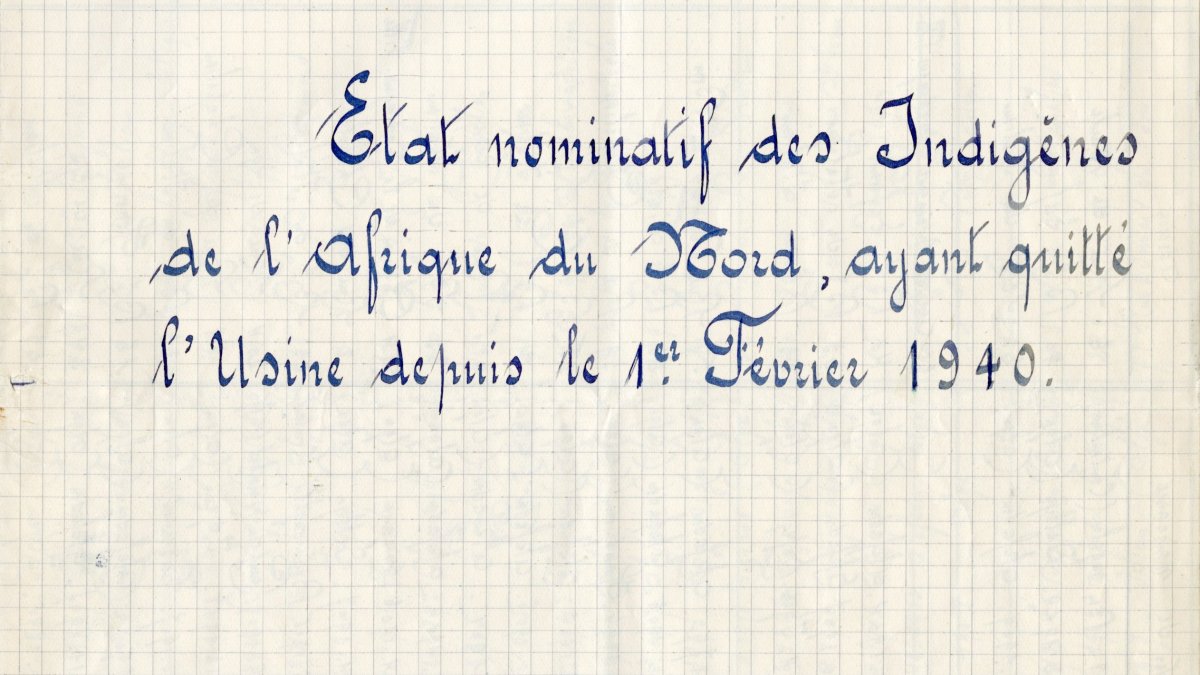 Etat nominatif des Indigènes
de l'Afrique du Nord, ayant quitté
l'Usine depuis le 1er. Février 1940.